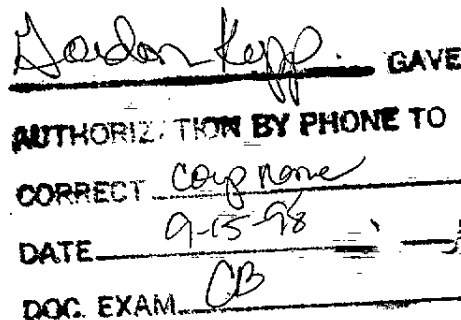 Gordon Kopp. GAVE
AUTHORIZATION BY PHONE TO
CORRECT corp name
DATE 9-15-98
DOC. EXAM. CB